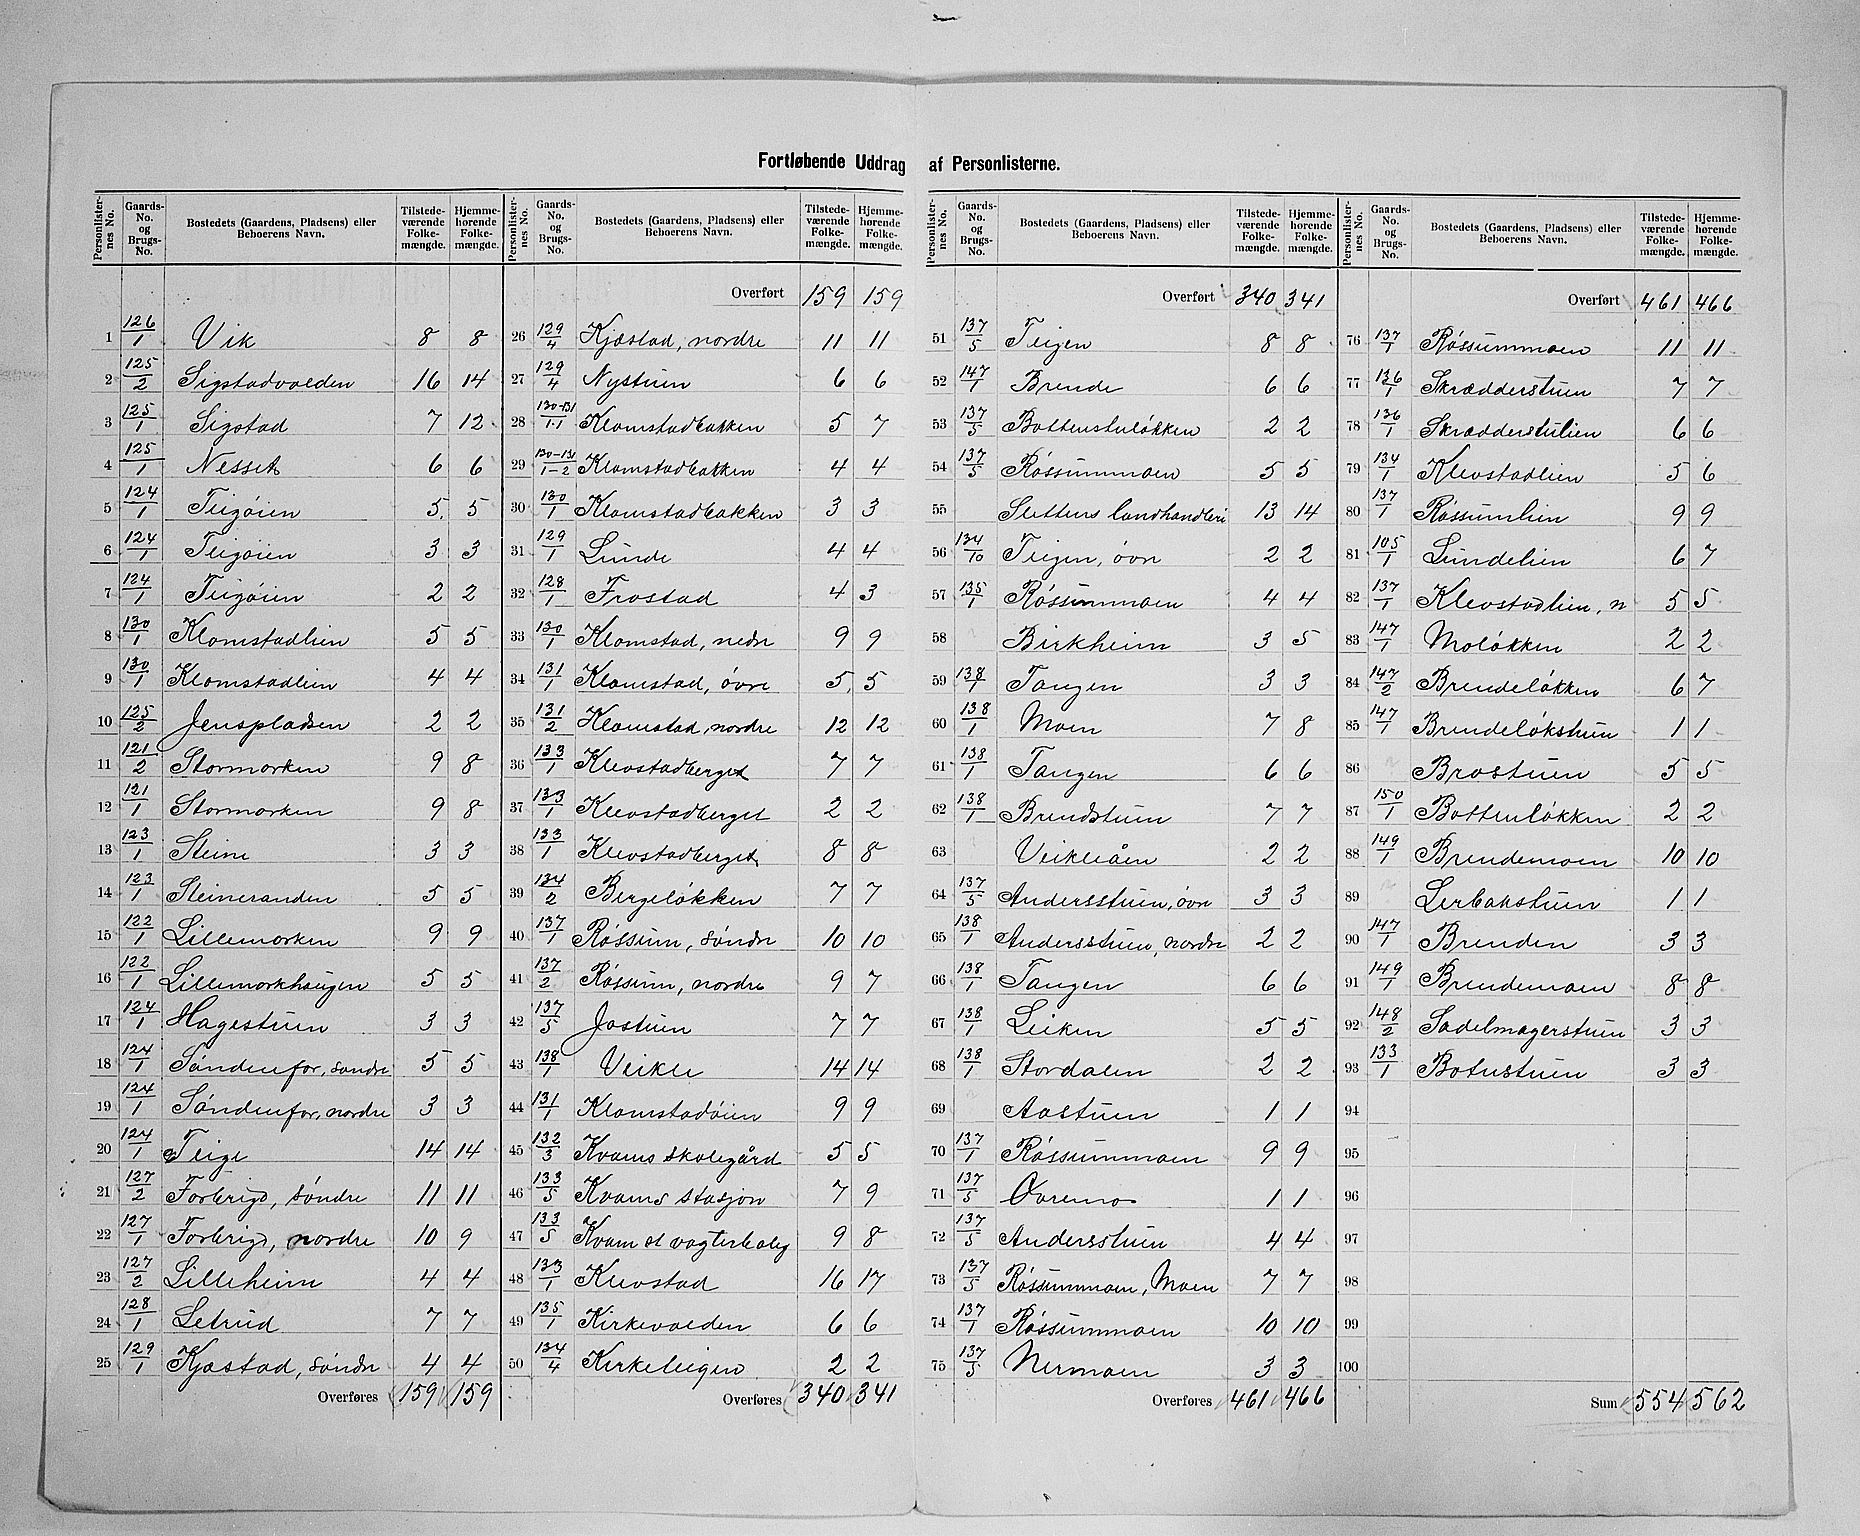 Fortløbende Uddrag af Personlisterne.
Personlister-nes No. | Gaards-No. og Brugs-No. | Bostedets (Gaardens, Pladsens) eller Beboerens Navn. | Tilstede-værende Folke-mængde. | Hjemme-hørende Folke-mængde.
1 126/1 Vik 8 8
2 125/2 Sigstadvolden 16 14
3 125/1 Sigstad 7 12
4 125/1 Nesset 6 6
5 124/1 Teigøien 5 5
6 124/1 Teigøien 3 3
7 124/1 Teigøien 2 2
8 130/1 Klomstadlien 5 5
9 130/1 Klomstadlien 4 4
10 125/2 Jenspladsen 2 2
11 121/2 Stormorken 9 8
12 121/1 Stormorken 9 8
13 123/1 Steine 3 3
14 123/1 Steineranden 5 5
15 122/1 Lillemorken 9 9
16 122/1 Lillemorkhaugen 5 5
17 124/1 Hagestuen 3 3
18 124/1 Søndenfor, søndre 5 5
19 124/1 Søndenfor, nordre 3 3
20 124/1 Teige 14 14
21 127/2 Forbrigd, søndre 11 11
22 127/1 Forbrigd, nordre 10 9
23 127/2 Lilleheim 4 4
24 128/1 Letrud 7 7
25 129/1 Kjæstad, søndre 4 4
Overføres 159 159
Personlister-nes No. | Gaards-No. og Brugs-No. | Bostedets (Gaardens, Pladsens) eller Beboerens Navn. | Tilstede-værende Folke-mængde. | Hjemme-hørende Folke-mængde.
Overført 159 159
26 129/4 Kjæstad, nordre 11 11
27 129/4 Nystuen 6 6
28 130-131/1-1 Klomstadbakken 5 7
29 130-131/1-2 Klomstadbakken 4 4
30 130/1 Klomstadbakken 3 3
31 129/1 Lunde 4 4
32 128/1 Frostad 4 3
33 130/1 Klomstad, nedre 9 9
34 131/1 Klomstad, øvre 5 5
35 131/2 Klomstad, nordre 12 12
36 133/1 Klevstadberget 7 7
37 133/1 Klevstadberget 2 2
38 133/1 Klevstadberget 8 8
39 134/2 Bergeløkken 7 7
40 137/1 Røssum, søndre 10 10
41 137/2 Røssum, nordre 9 7
42 137/5 Jostuen 7 7
43 138/1 Veikle 14 14
44 131/1 Klomstadøien 9 9
45 132/3 Kvams skolegård 5 5
46 133/5 Kvams stasjon 7 9
47 133/5 Kvam st vogterbolig 9 8
48 133/1 Klevstad 16 17
49 135/1 Kirkevolden 6 6
50 134/4 Kirketeigen 2 2
Overføres 340 341
Personlister-nes No. | Gaards-No. og Brugs-No. | Bostedets (Gaardens, Pladsens) eller Beboerens Navn. | Tilstede-værende Folke-mængde. | Hjemme-hørende Folke-mængde.
Overført 340 341
51 137/5 Teigen 8 8
52 147/1 Brende 6 6
53 137/5 Bottenstuløkken 2 2
54 137/5 Røssummoen 5 5
55 Slettens landhandleri 13 14
56 134/10 Teigen, øvre 2 2
57 135/1 Røssummoen 4 4
58 Birkheim 3 5
59 138/1 Tangen 3 3
60 138/1 Moen 7 8
61 138/1 Tangen 6 6
62 138/1 Brendstuen 7 7
63 Veikleåen 2 2
64 137/5 Andersstuen, øvre 3 3
65 138/1 Andersstuen, nordre 2 2
66 138/1 Tangen 6 6
67 138/1 Leiken 5 5
68 138/1 Stordalen 2 2
69 Aastuen 1 1
70 137/1 Røssummoen 9 9
71 137/5 Øvremo 1 1
72 137/5 Andersstuen 4 4
73 137/5 Røssummoen, Moen 7 7
74 137/1 Røssummoen 10 10
75 137/5 Nermoen 3 3
Overføres 461 466
Personlister-nes No. | Gaards-No. og Brugs-No. | Bostedets (Gaardens, Pladsens) eller Beboerens Navn. | Tilstede-værende Folke-mængde. | Hjemme-hørende Folke-mængde.
Overført 461 466
76 137/1 Røssummoen 11 11
77 136/1 Skrædderstuen 7 7
78 136/1 Skrædderstulien 6 6
79 134/1 Klevstadlien 5 6
80 137/1 Røssumlien 9 9
81 105/1 Lundelien 6 7
82 137/1 Klevstadlien, n 5 5
83 147/1 Moløkken 2 2
84 147/2 Brendeløkken 6 7
85 147/1 Brendeløkstuen 1 1
86 Brostuen 5 5
87 150/1 Bottenløkken 2 2
88 149/1 Brendemoen 10 10
89 Lerbakstuen 1 1
90 147/1 Brenden 3 3
91 149/1 Brendemoen 8 8
92 148/2 Sadelmagerstuen 3 3
93 133/1 Botnstuen 3 3
94
95
96
97
98
99
100
Sum 554 562